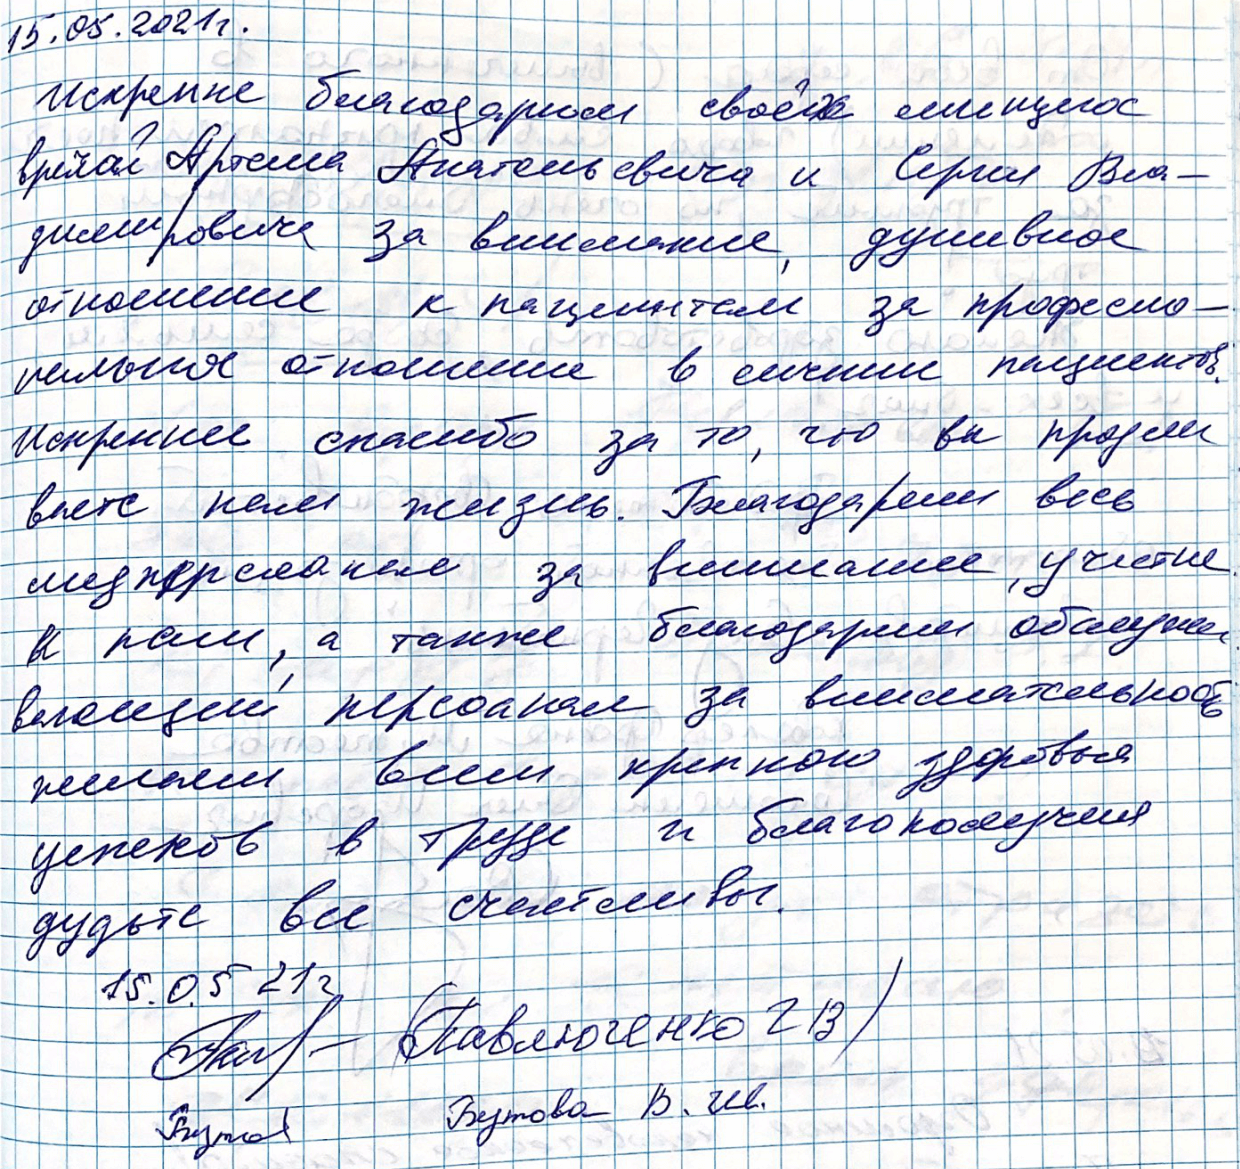 15.05.2021г.
Искренне благодарим своёх лечащих
врачей Артёма Анатольевича и Сергея Вла-
димировича за внимание, душевное
отношение к пациентам за професио-
нальное отношение в лечении пациентов.
Искреннее спасибо за то, что вы продле
ваете нам жизнь. Благодарим весь
медперсанал за внимание, участие
к нам, а также благодарим обслужи
вающий персонал за внимательность
желаем всем крепкого здоровья
успехов в труде и благополучия
будьте все счастливы.
15.05 21г
(Павлюченко Г В)
Бутова В. Ив.